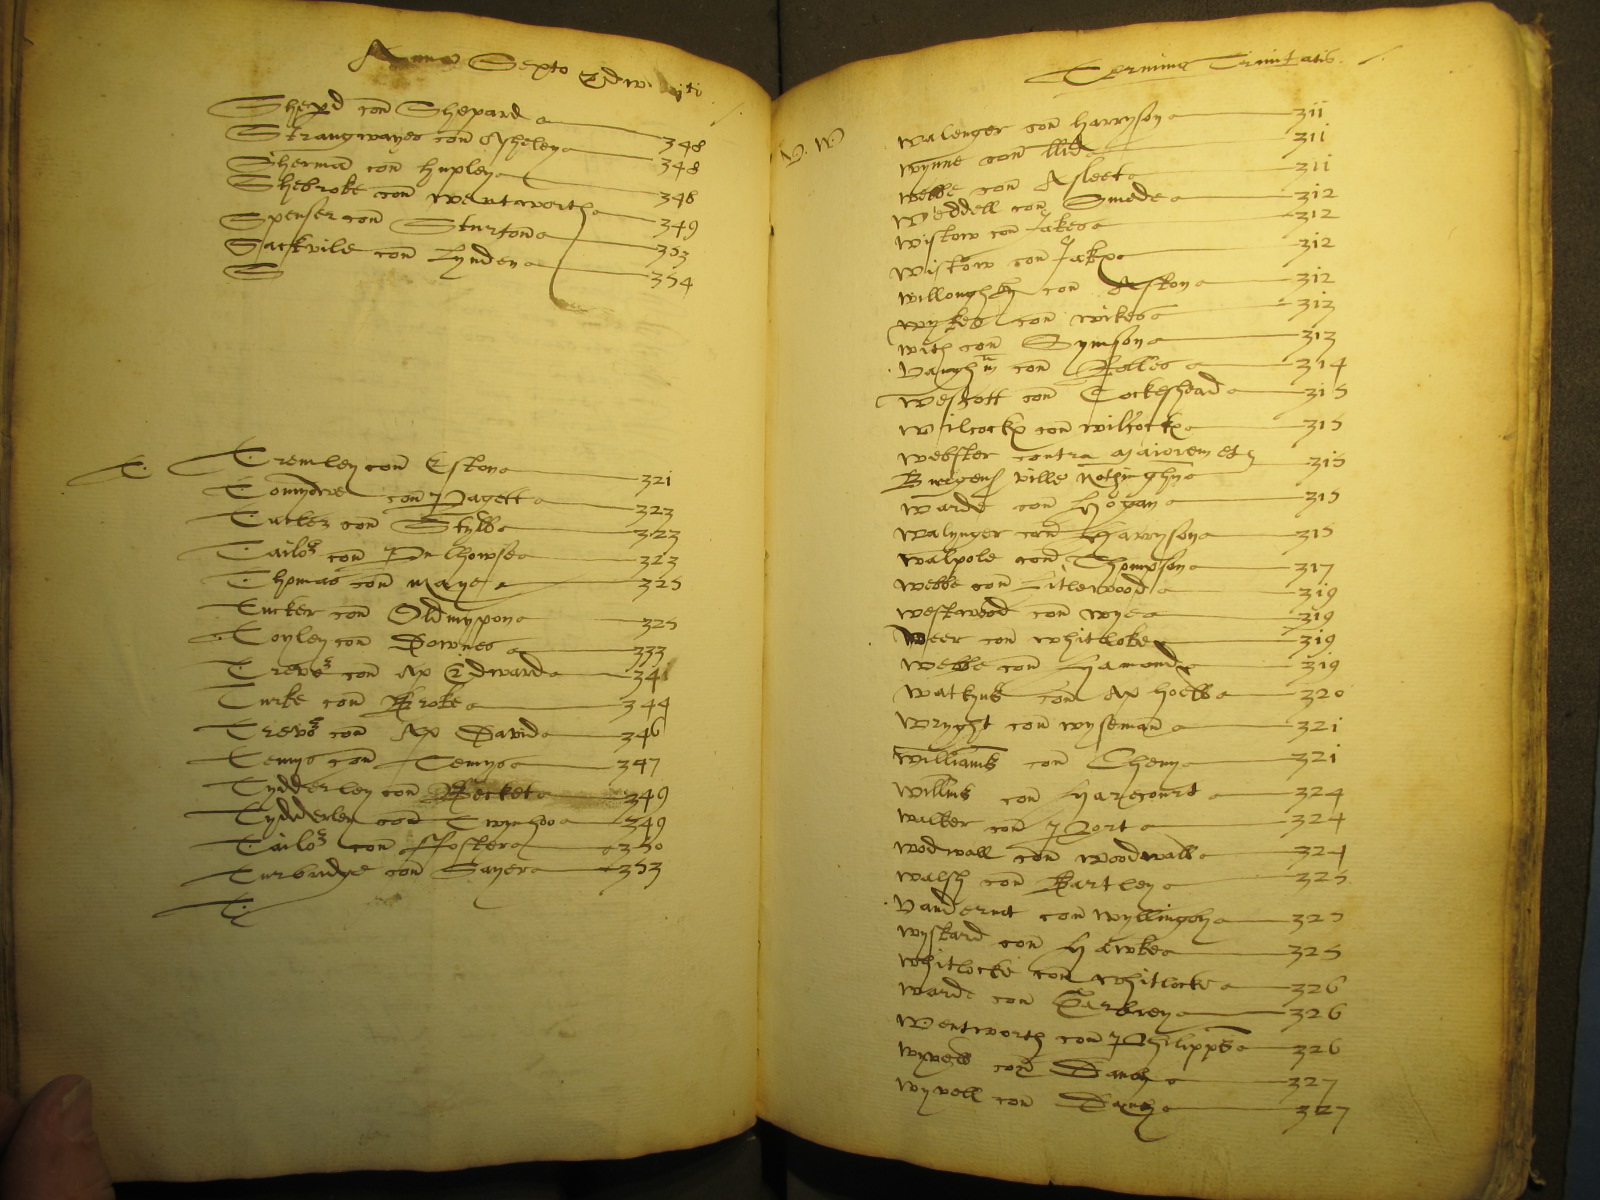 Anno Septo Edw. vjti
Shepd con Shepard 348
Strangwayes con Asheley 348
Sherma con hupley 348
Shebroke con wentworth 349
Spenser con Sturton 353
Sackvile con Lynden 354
S
T. Tremley con Eston 321
con Pagett 323
Tutler con Stylbb 323
Tailor con 323
Thomas con Maye 325
Tucker con Oldmyxon 325
Toyley con Downes 333
Trevor con Ap Edward 341
Turke con Kroke 344
Trevor con Ap David 346
Temys con Temys 347
Tydderley con Becket 349
Tydderley con Twynhoo 349
Tailor con ffoster 350
Turbridge con Sayer 353
T.
Termino Trinitatis
V. W walenger con harryson 311
wynne con lled 311
webbe con Asleet 311
weddell con Smede 312
wistow con Jakes 312
wistow con Jakx 312
willoughby con Aston 312
wykes con wikes 313
with con Symson 313
Vaughn con Rolles 314
westcott con Cockeshead 315
wilcockx con wilcockx 315
webster contra Maiorem et
Burgens ville Notinghm 315
warde con Hogan 315
walynger con Harryson 315
walpole con Thompson 317
webbe con Litlewood 319
westwood con wye 319
weer con whitloke 319
webbe con Hamond 319
watkyns con Ap hoell 320
wryght con wyseman 321
williams con Cheny 321
willms con Harecourt 324
wilker con Port 324
wodwall con woodwall 324
walsh con Bartley 325
Vandernt con wyllingby 325
wystard con Hawke 325
whitlocke con whitlocke 326
warde con 326
wentworth con Philipps 326
wyvell con Danby 327
wyvell con Danby 327